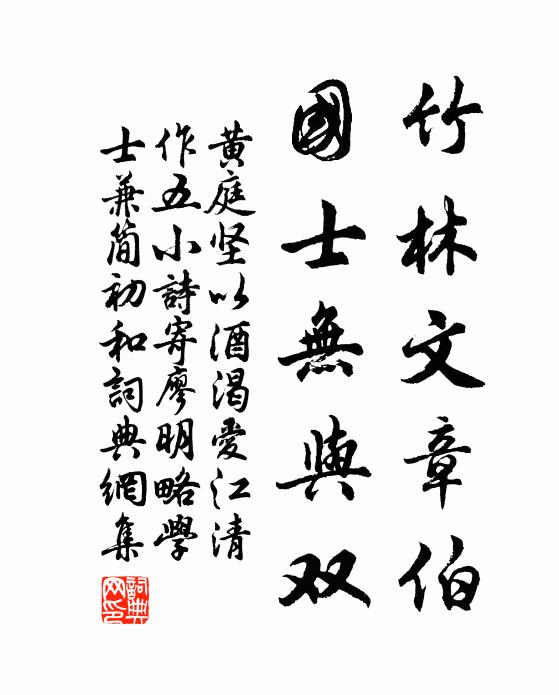 竹林文章伯
國士無與双
黄庭坚以酒渴愛江清
作五小詩寄廖明略學
士兼简初和詞典網集
詞典網印